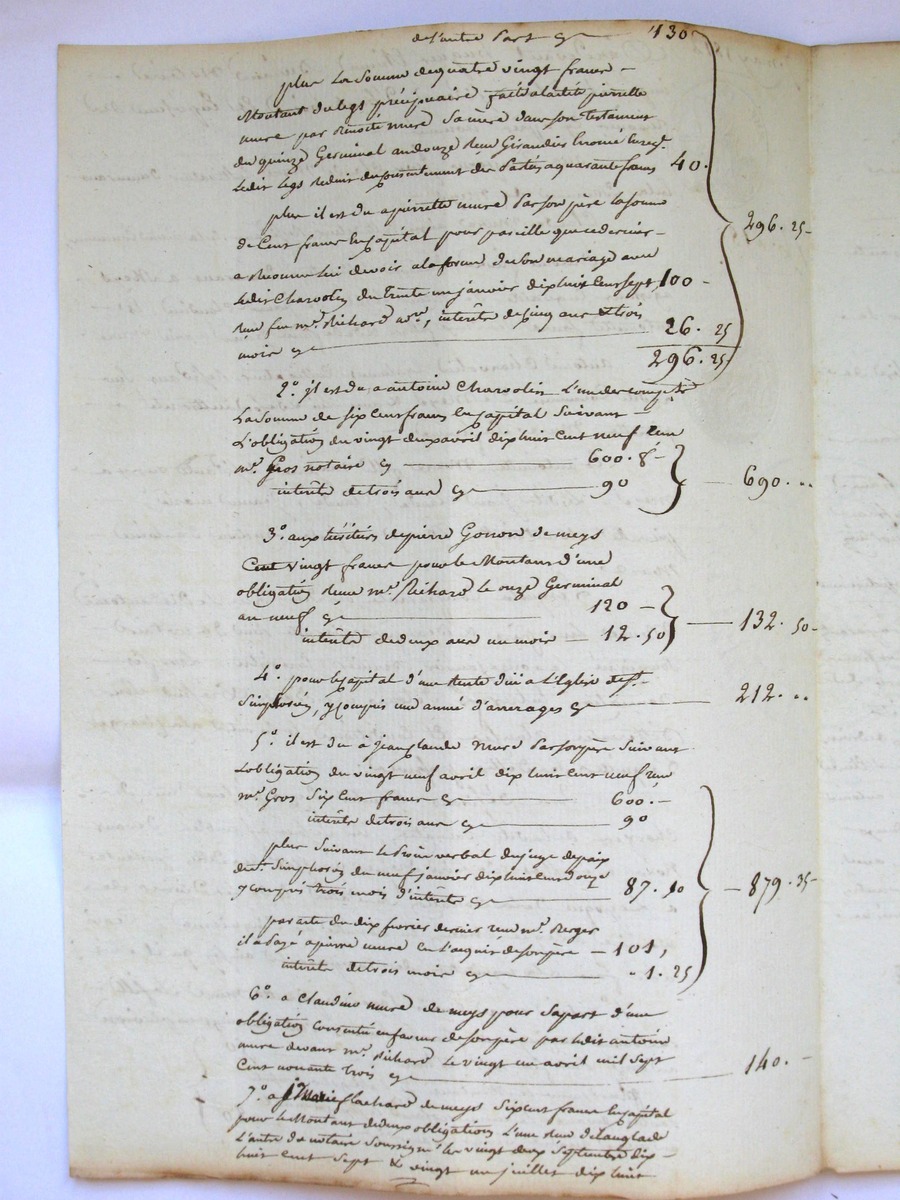 de l'autre part cy 130
plus la somme de quatre vingt francs
Montant du legs préciputaire fait à ladite pierrette
mure par Benoite mure sa mère dans son testament
du quinze Germinal an douze Reçu Giraudier
ledit legs réduit du consentement des parties a quarante francs 40.
plus il est du a pierrette mure par son père la somme
de Cent francs en capital pour pareille que ce dernier
a reconnu lui devoir a la forme de son mariage avec
ledit Charvolin du trente un janvier dix huit cent sept 100
Reçu feu me. Richard nore, intérêts de cinq ans & trois
mois cy 26. 25
296. 25
296. 25
2o. il est du a antoine Charvolin l'un des
La somme de six cent francs en capital suivant
L'obligation du vingt deux avril dix huit cent neuf reçue
me. Gros notaire cy 600. f
intérêts de trois ans cy 90
690 ..
3o. aux héritiers de pierre Gonon de meys
Cent vingt francs pour le Montant d'une
obligation reçue me. Richard le onze Germinal
an neuf cy 120
intérêts de deux ans un mois 12. 50
132. 50
4o. pour le capital d'une Rente due a L'Eglise de St.
Simphorien, y compris une année d'arrerages cy 212. ..
5o. il est du à jean Claude Mure par son père suivant
L'obligation du vingt neuf avril dix huit cent neuf reçue
me. Gros six cent francs cy 600.
intérêts de trois ans cy 90
plus suivant le procès verbal du juge de paix
de St. Simphorien du neuf janvier dix huit cent douze
y compris trois mois d'intérêts cy 87. 10
879. 35
par acte du dix fevrier dernier reçu me. Berger
il a payé a pierre mure en l'acquit de son père 101,
intérêts de trois mois cy 1. 25
6o. a Claudine mure de meys pour sa part d'une
obligation consentie en faveur de son père par ledit antoine
mure devant me. Richard le vingt un avril mil sept
Cent nonante trois cy 140.
7o. a Flachard de meys six cent francs en capital
pour le Montant de deux obligations l'une reçue Delanglade
L'autre du notaire soussigné les vingt deux septembre dix
huit cent sept & vingt un juillet dix huit